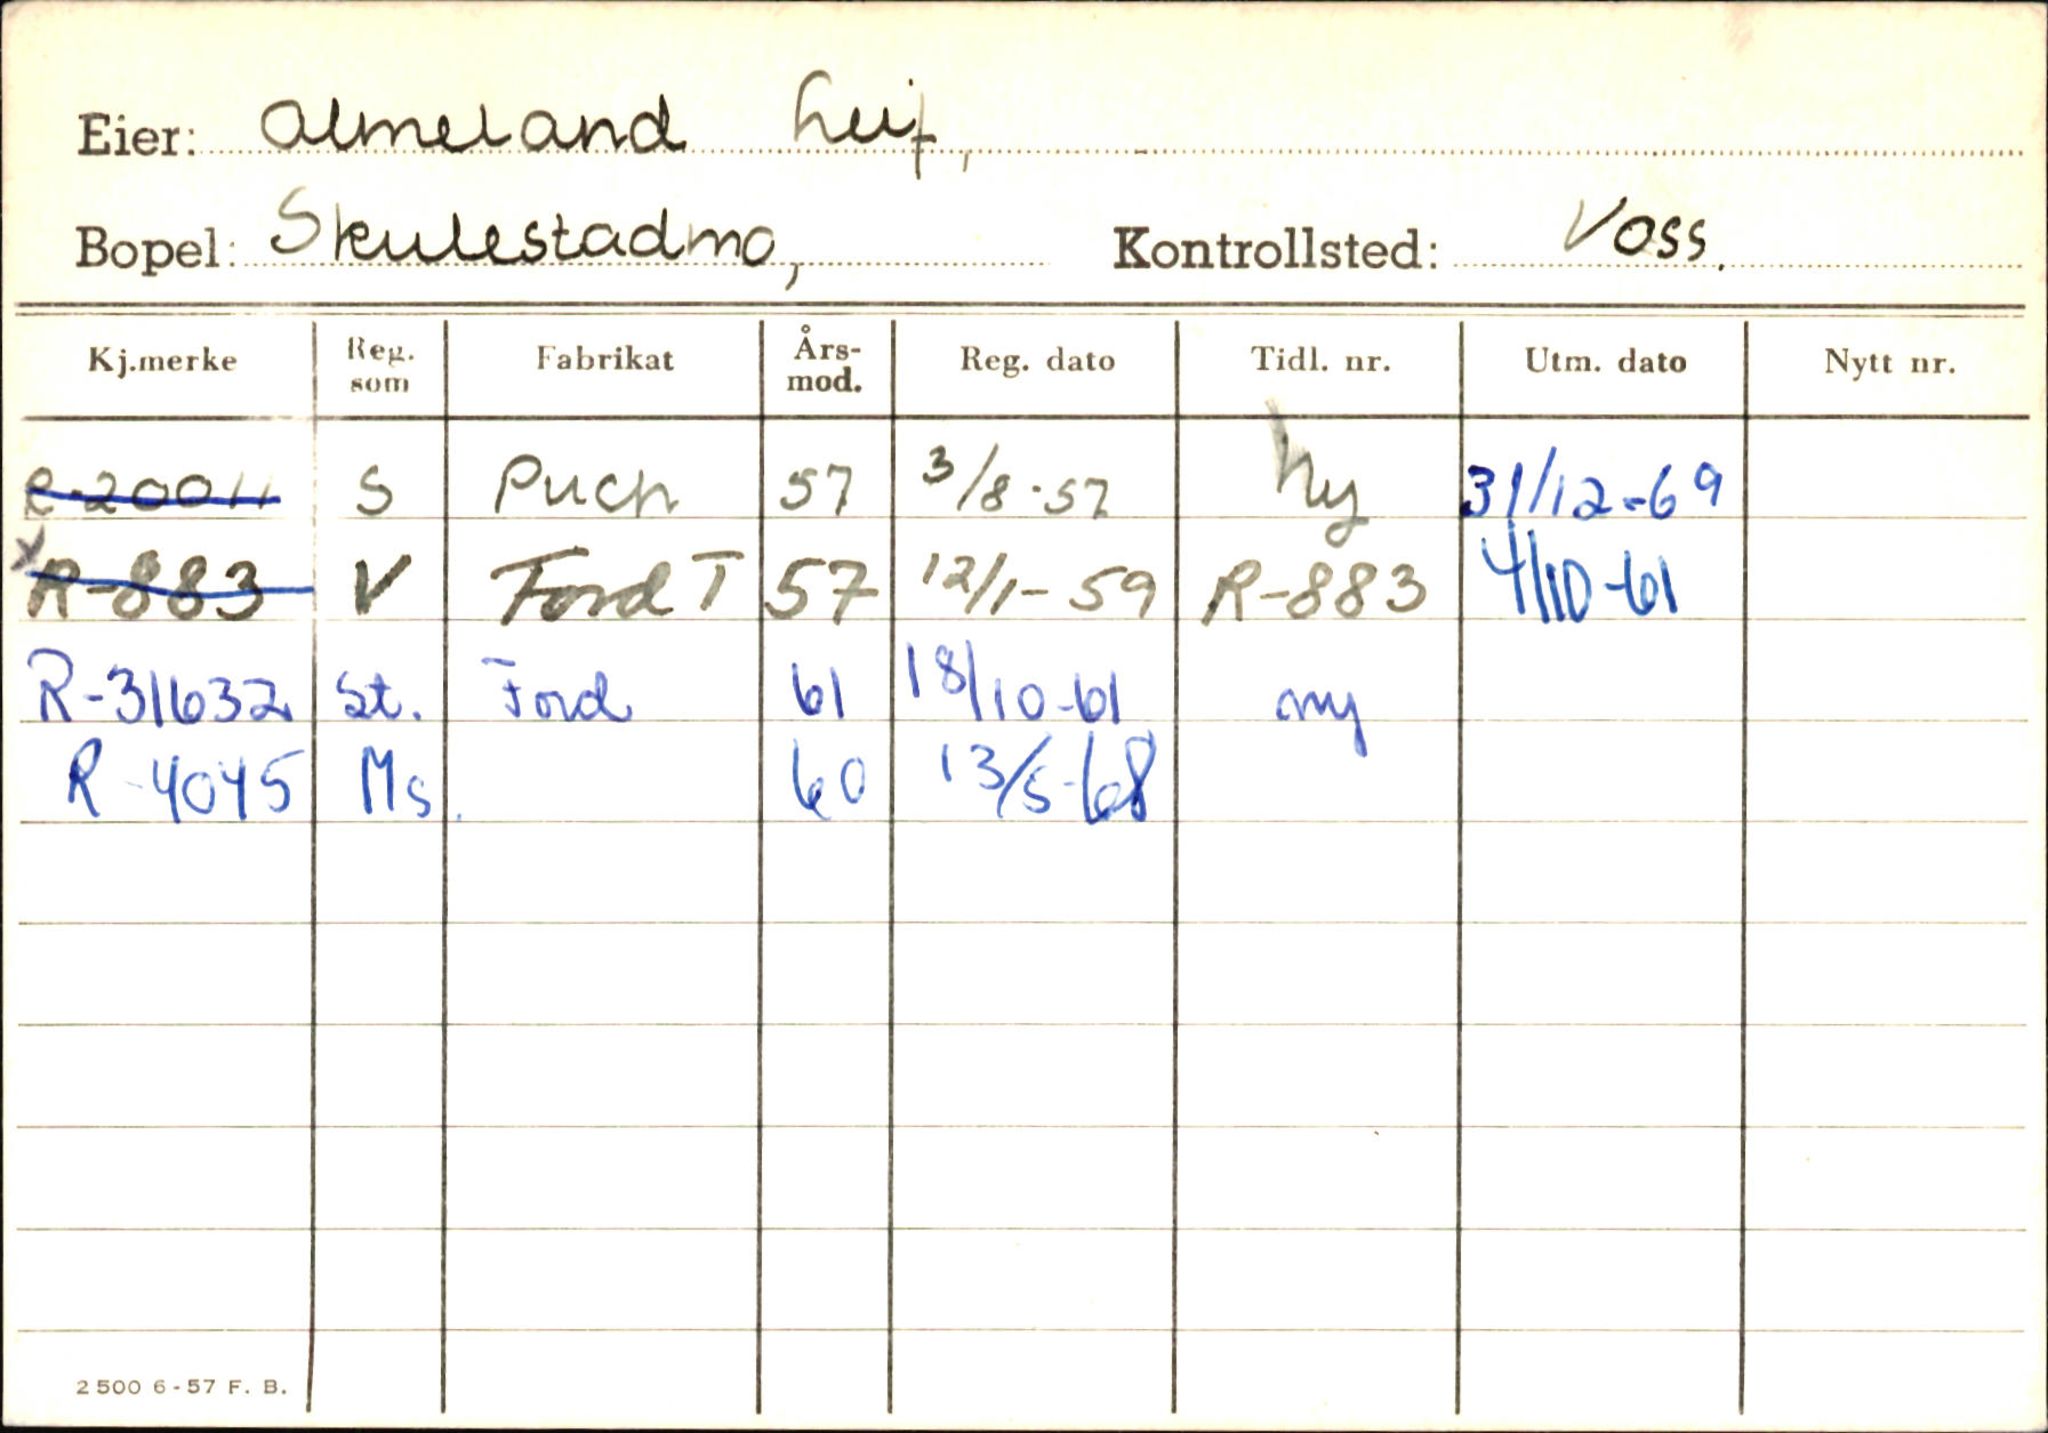 Eier: Almeland Leif,
Bopel: Skulestadmo, Kontrollsted: Voss.
Kj.merke Reg. som Fabrikat Års-mod. Reg. dato Tidl. nr. Utm. dato Nytt nr.
R-20011 S Puch 57 3/8-57 Ny 31/12-69
x R-883 V Ford T 57 12/1-59 R-883 4/10-61
R-31632 St. Ford 61 18/10-61 ny
R-4045 Ms. 60 13/5-68
2500 6-57 F. B.